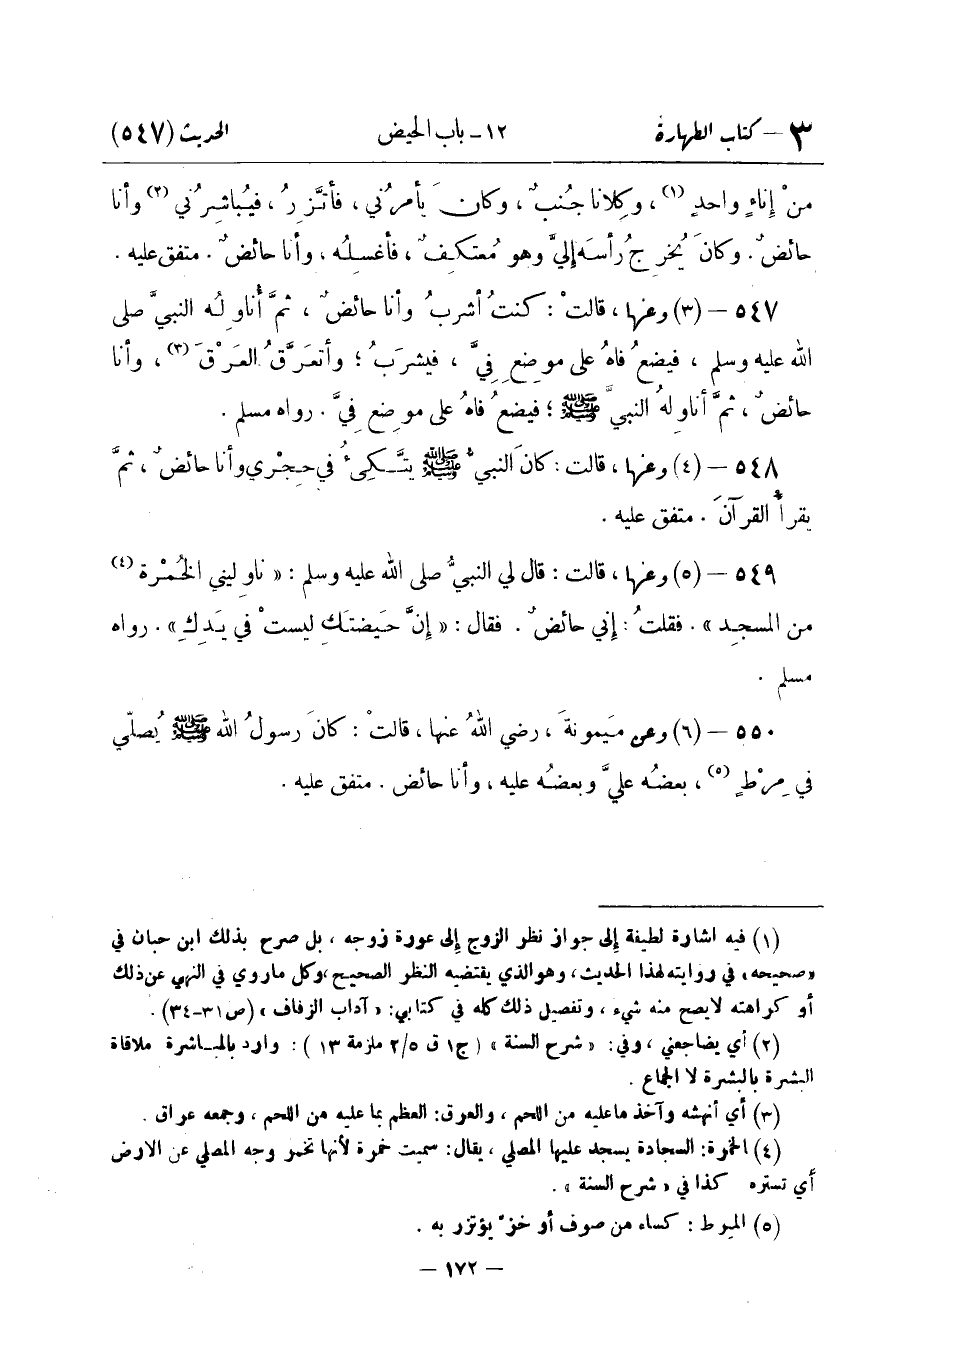 ٣ – كتاب الطهارة ١٢ - باب الحيض الحديث (٥٤٧)
منْ إناءٍ واحدٍ (١) ، وكلانا جنُبٌ ، وكان يأمرُني ، فأتَّزِرُ ، فيُباشِرُني (٢) وأنا
حائضٌ . وكانَ يُخرِجُ رأسَه إليَّ وهو مُعتكِفٌ ، فأغسِلُه ، وأنا حائضٌ . متفق عليه .
٥٤٧ – (٣) وعنها ، قالتْ : كنتُ أشربُ وأنا حائضٌ ، ثمَّ أُناوِلُه النبيَّ صلى
الله عليه وسلم ، فيضعُ فاهُ على موضِعِ فِيَّ ، فيشرَبُ ؛ وأتعرَّقُ العَرْقَ (٣) ، وأنا
حائضٌ ، ثمَّ أناوِلهُ النبيَّ ﷺ ؛ فيضعُ فاهُ على موضِعِ فِيَّ . رواه مسلم .
٥٤٨ – (٤) وعنها ، قالت : كانَ النبيُّ ﷺ يتَّكِئُ في حِجْري وأنا حائضٌ ، ثمَّ
يقرأُ القرآنَ . متفق عليه .
٥٤٩ – (٥) وعنها ، قالت : قال لي النبيُّ صلى الله عليه وسلم : « ناوِليني الخُمْرة (٤)
من المسجِد » . فقلتُ : إني حائضٌ . فقال : « إنَّ حَيضتَكِ ليستْ في يَدِكِ » . رواه
مسلم .
٥٥٠ – (٦) وعن مَيمونةَ ، رضي اللهُ عنها ، قالتْ : كانَ رسولُ الله ﷺ يُصلّي
في مِرْطٍ (٥) ، بعضُه عليَّ وبعضُه عليه ، وأنا حائض . متفق عليه .
(١) فيه اشارة لطيفة إلى جواز نظر الزوج إلى عورة زوجه ، بل صرح بذلك ابن حبان في
«صحيحه» في روايته لهذا الحديث ، وهو الذي يقتضيه النظر الصحيح ، وكل ما روي في النهي عن ذلك
أو كراهته لا يصح منه شيء ، وتفصيل ذلك كله في كتابي: « آداب الزفاف » (ص٣١-٣٤) .
(٢) أي يضاجعني ، وفي: « شرح السنة » ( ج١ ق ٢/٥ ملزمة ١٣ ) : واراد بالمباشرة ملاقاة
البشرة بالبشرة لا الجماع .
(٣) أي أنهشه وآخذ ما عليه من اللحم ، والعرق: العظم بما عليه من اللحم ، وجمعه عراق .
(٤) الخمرة: السجادة يسجد عليها المصلي ، يقال: سميت خمرة لأنها تخمر وجه المصلي عن الارض
أي تستره كذا في « شرح السنة » .
(٥) المرط : كساء من صوف أو خزّ يؤتزر به .
– ١٧٢ –